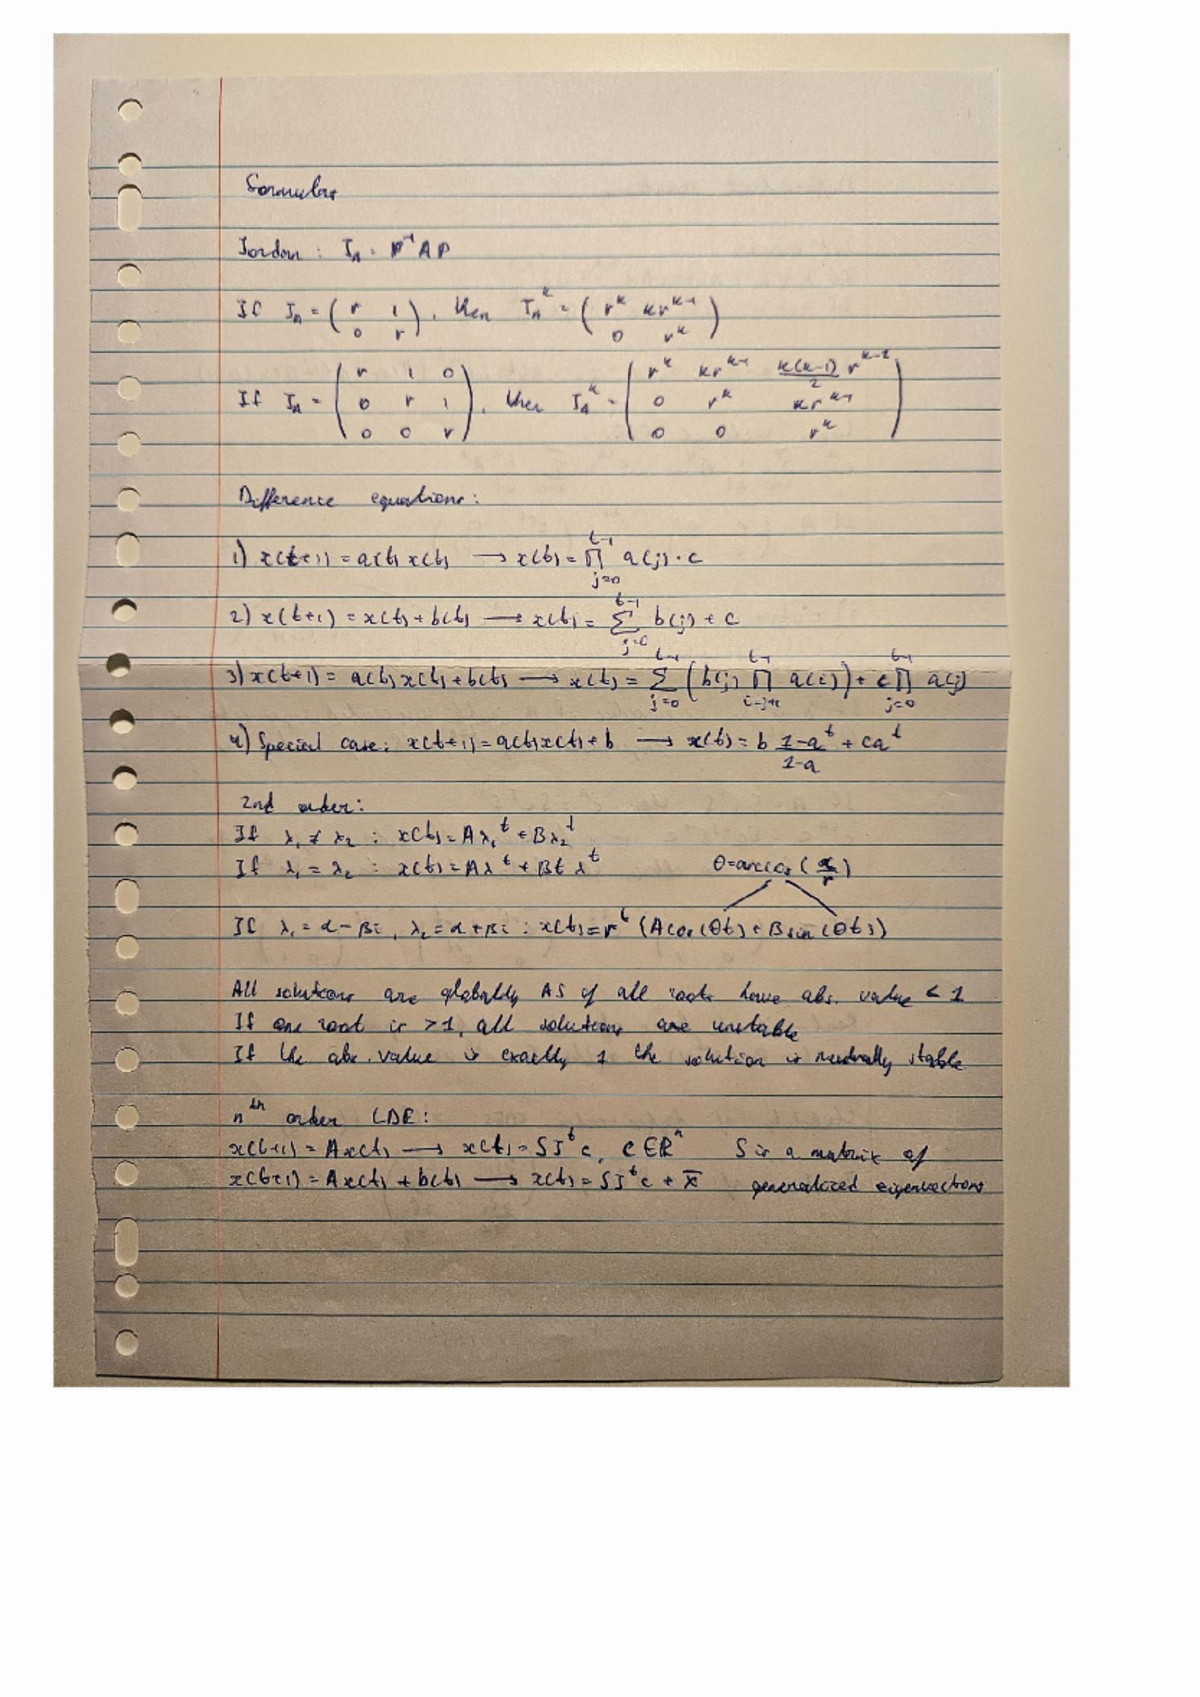 Formulas
Jordan : J_A = P^{-1} A P
If J_A = ( r 1 ; 0 r ), then J_A^k = ( r^k kr^{k-1} ; 0 r^k )
If J_A = ( r 1 0 ; 0 r 1 ; 0 0 r ), then J_A^k = ( r^k kr^{k-1} k(k-1)/2 r^{k-2} ; 0 r^k kr^{k-1} ; 0 0 r^k )
Difference equations:
1) x(t+1) = a(t) x(t) → x(t) = ∏_{j=0}^{t-1} a(j) · c
2) x(t+1) = x(t) + b(t) → x(t) = ∑_{j=0}^{t-1} b(j) + c
3) x(t+1) = a(t) x(t) + b(t) → x(t) = ∑_{j=0}^{t-1} ( b(j) ∏_{i=j+1}^{t-1} a(i) ) + c ∏_{j=0}^{t-1} a(j)
4) Special case: x(t+1) = a(t) x(t) + b → x(t) = b (1-a^t)/(1-a) + ca^t
2nd order:
If λ₁ ≠ λ₂ : x(t) = Aλ₁^t + Bλ₂^t
If λ₁ = λ₂ : x(t) = Aλ^t + Bt λ^t
θ = arccos(α/r)
If λ₁ = α - βi, λ₂ = α + βi : x(t) = r^t (A cos(θt) + B sin(θt))
All solutions are globally AS if all roots have abs. value < 1
If one root is > 1, all solutions are unstable
If the abs. value is exactly 1 the solution is neutrally stable
n^th order LDE:
x(t+1) = Ax(t) → x(t) = SJ^t c, c ∈ R^n S is a matrix of
x(t+1) = Ax(t) + b(t) → x(t) = SJ^t c + x̄ generalized eigenvectors